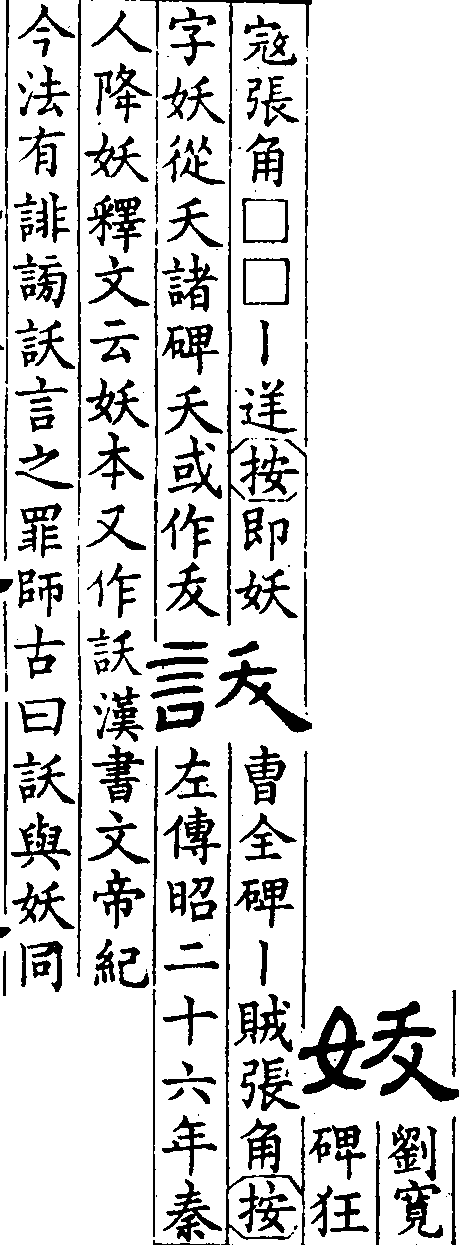 妖
劉寬
碑狂
寇張角□□丨逆按即妖
字妖從夭諸碑夭或作犮
訞
曹全碑丨賊張角按
左傳昭二十六年秦
人降妖釋文云妖本又作訞漢書文帝紀
今法有誹謗訞言之罪師古曰訞與妖同